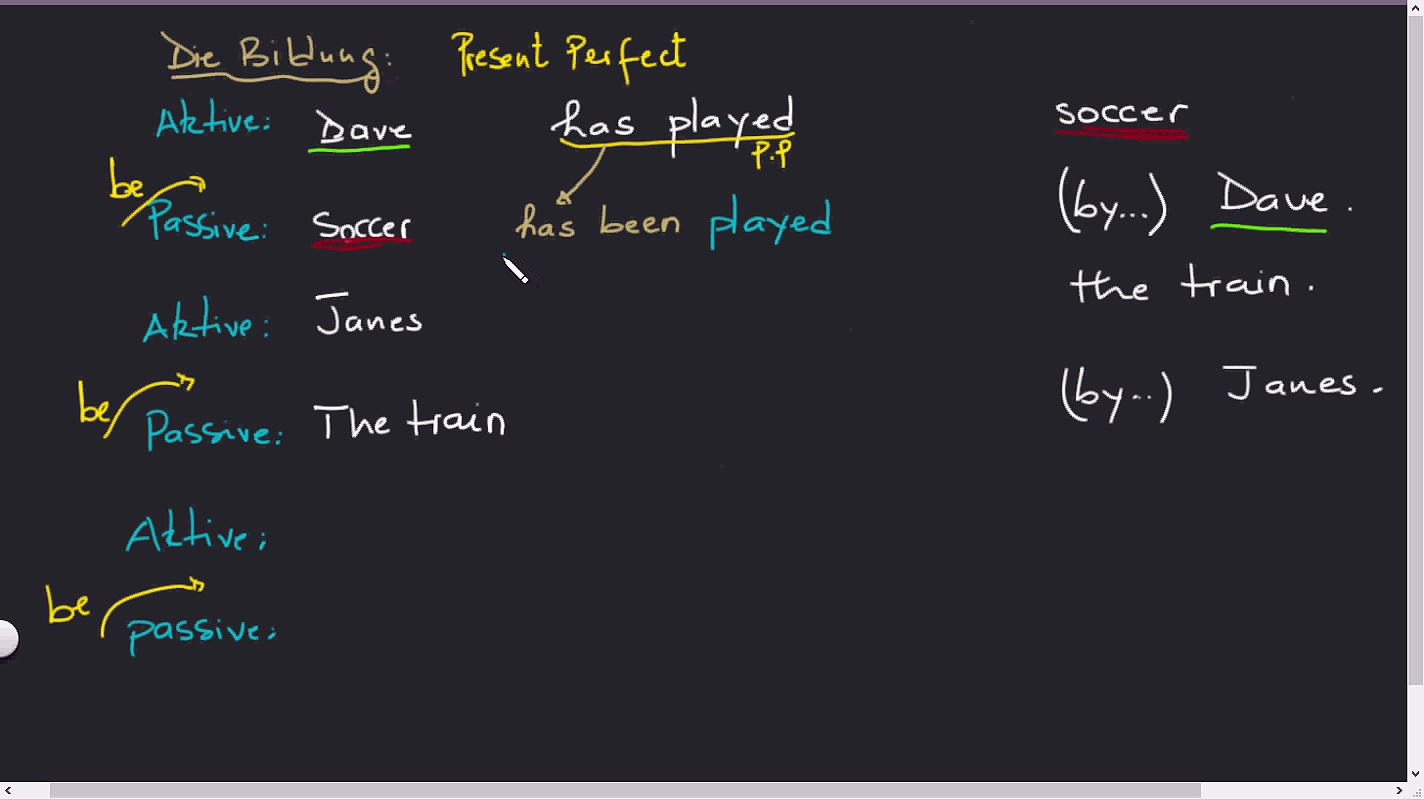 Die Bildung: Present Perfect
Aktive: Dave has played soccer
P.P
be
Passive: Soccer has been played (by...) Dave.
Aktive: Janes the train.
be
Passive: The train (by..) Janes.
Aktive:
be
passive: